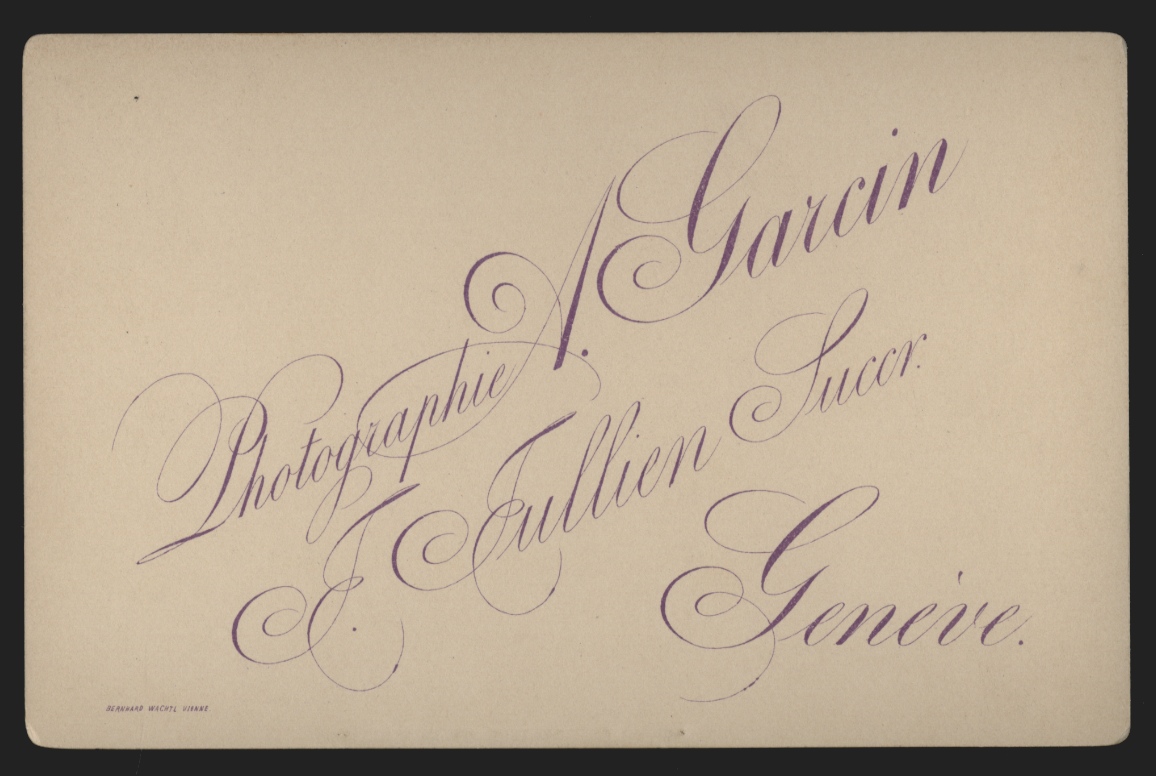 Photographie A. Garcin
J. Jullien Succr.
Genève.
BERNHARD WACHTL VIENNE